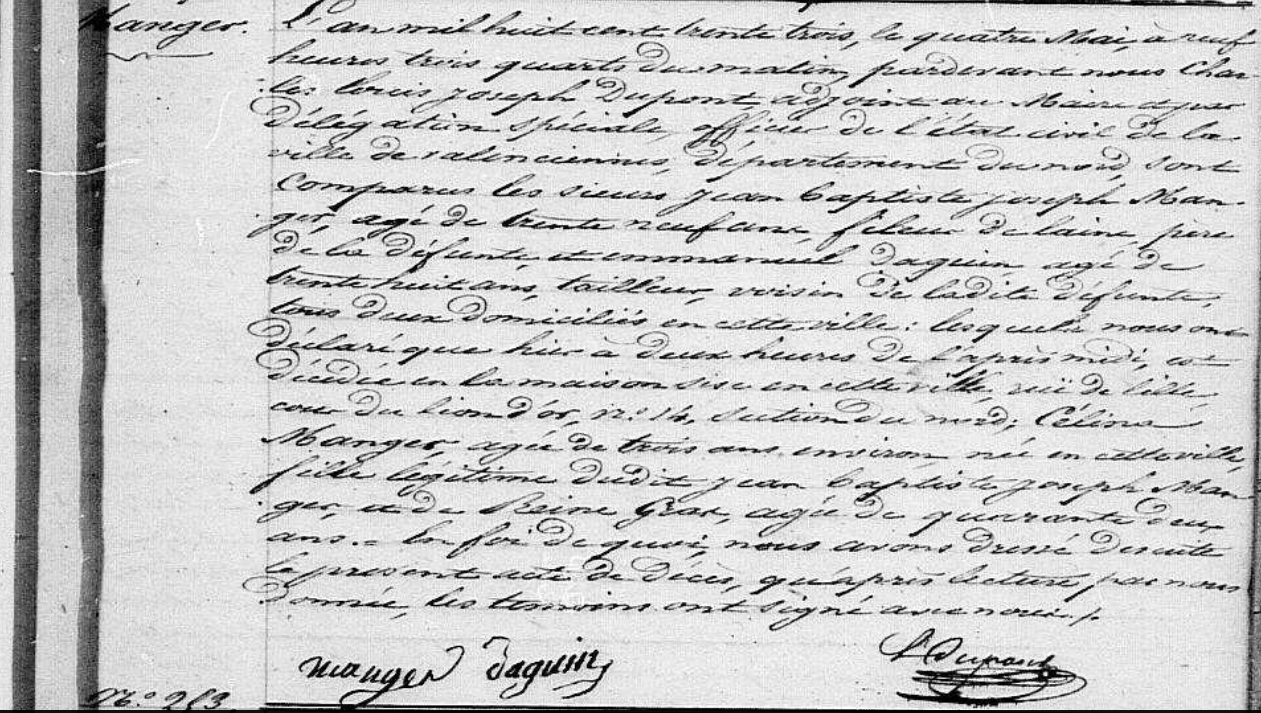 Manger.
L'an mil huit cent trente trois, le quatre Mai, à neuf
heures trois quarts du matin, pardevant nous Char-
les Louis Joseph Dupont, adjoint au Maire et par
Délégation spéciale, officier de l'état civil de la
ville de Valenciennes, département du nord, sont
Comparus les sieurs Jean Baptiste Joseph Man-
ger, agé de trente neuf ans, fileur de laine, père
de la défunte, et emmanuel Daguin, agé de
trente huit ans, tailleur, voisin de ladite défunte,
tous deux domiciliés en cette ville : lesquels nous ont
déclaré que hier à deux heures de l'après midi, est
décédée en la maison sise en cette ville, rue de lille,
cour du lion d'or, n.o 14, section du nord; Célina
Manger, agée de trois ans environ, née en cette ville,
fille légitime dudit Jean Baptiste Joseph Man-
ger, et de Reine Grar, agée de quarante deux
ans. = En foi de quoi, nous avons dressé de suite
le présent acte de décès, qu'après lecture, par nous
donnée, les temoins ont signé avec nous ./.
manger Daguin Ls Dupont
N.o 253